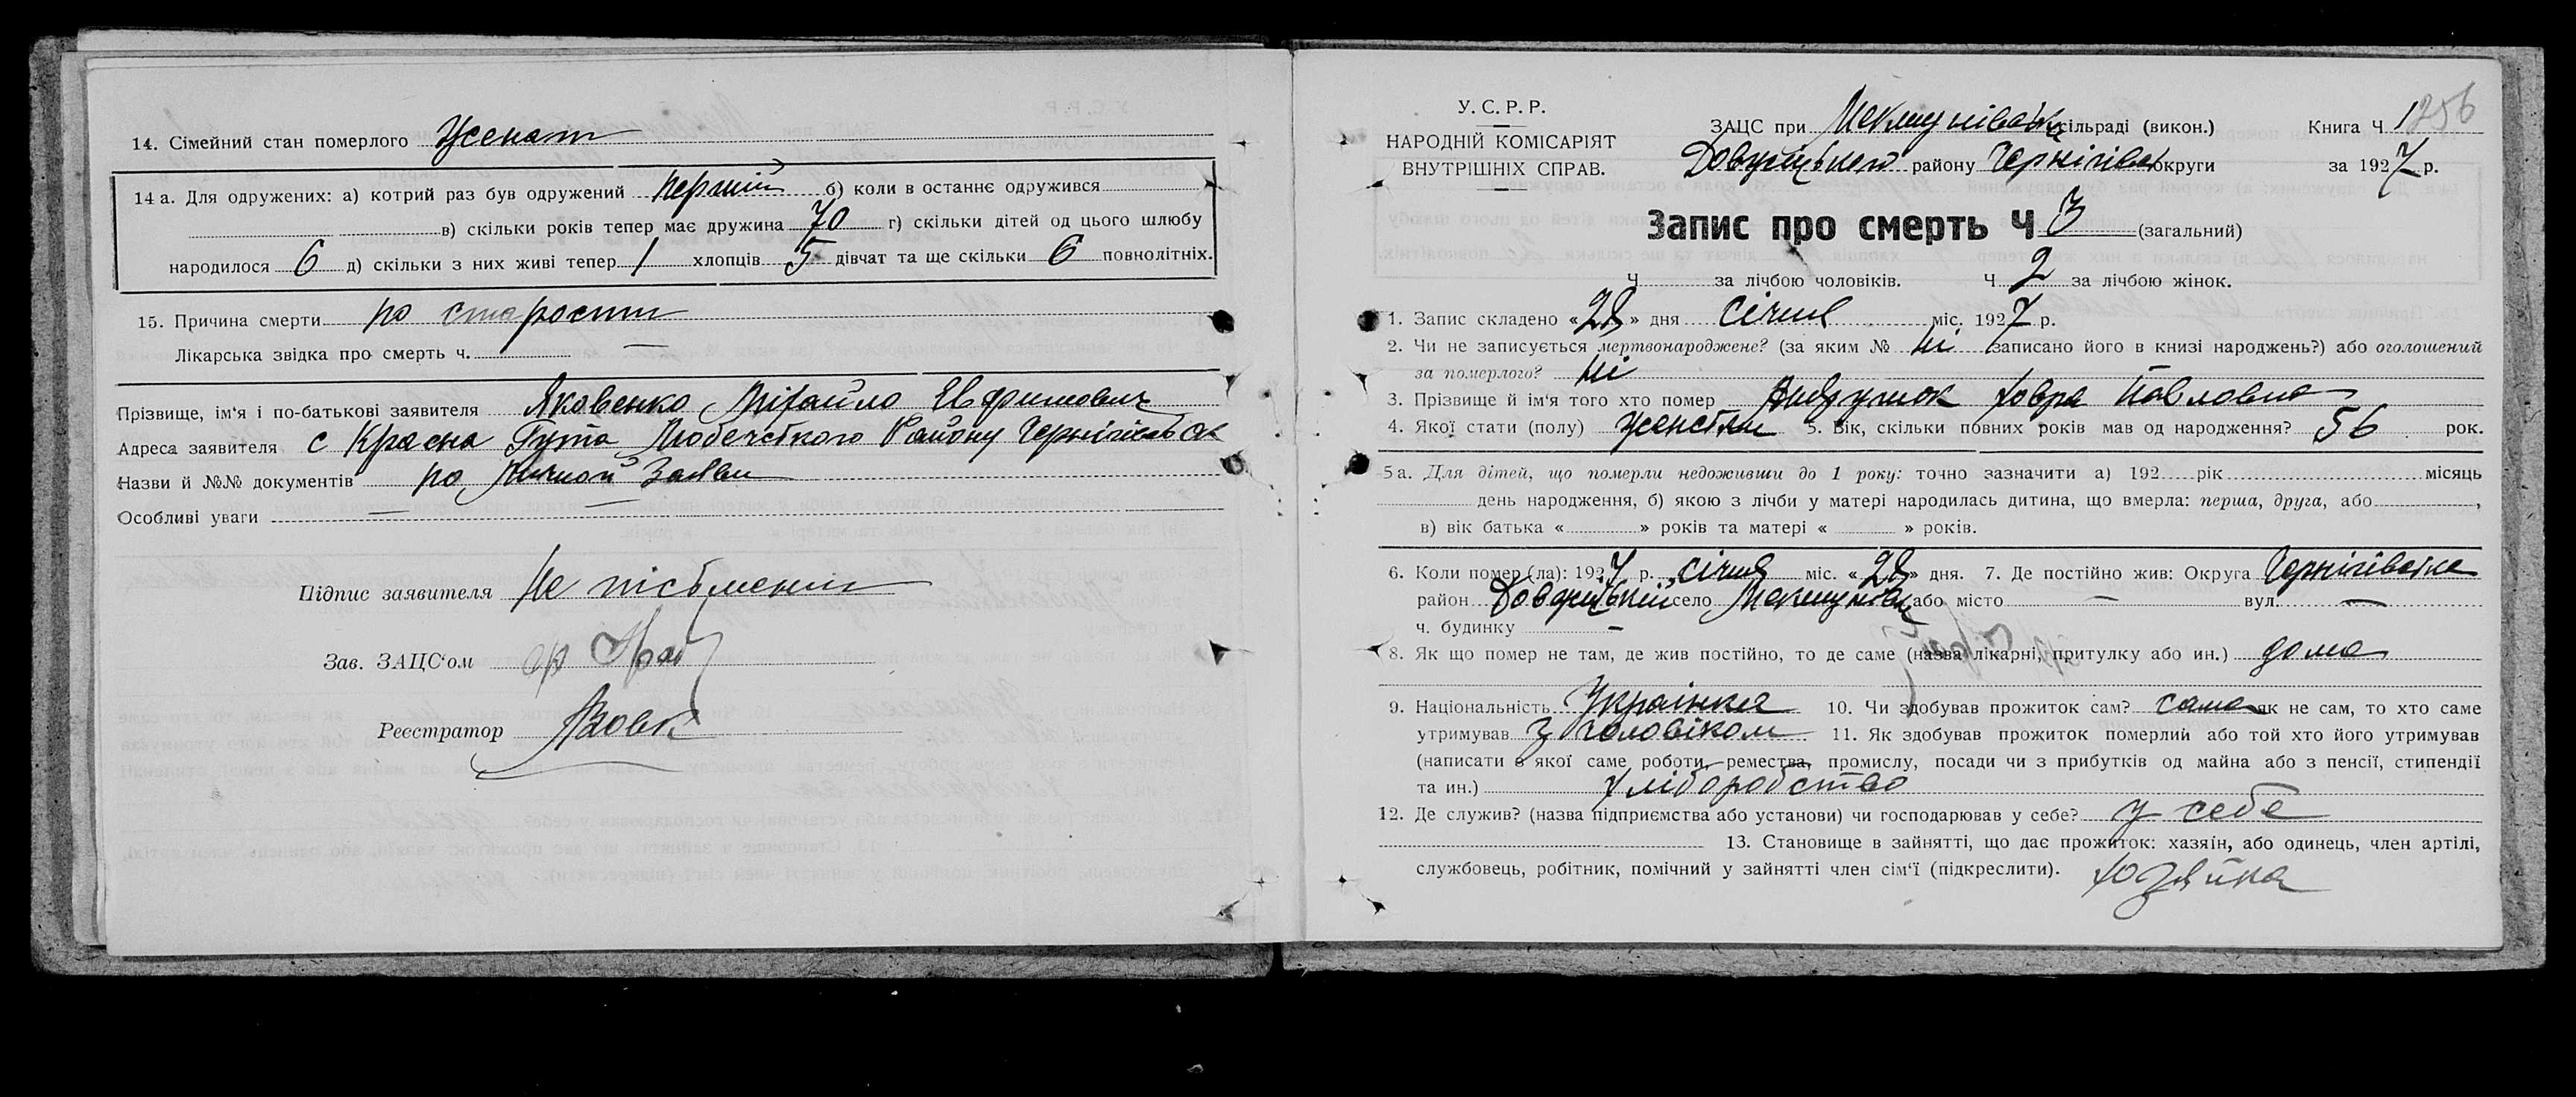 14. Сімейний стан померлого Женат
14 а. Для одружених: а) котрий раз був одружений Перший б) коли в останнє одружився
в) скільки років тепер має дружина 70 г) скільки дітей од цього шлюбу
народилося 6 д) скільки з них живі тепер 1 хлопців 5 дівчат та ще скільки 6 повнолітніх.
15. Причина смерти по старости
Лікарська звідка про смерть ч. —
Прізвище, ім'я і по-батькові заявителя Яковенко Міхайло
Адреса заявителя с Красна Гута Любечського Району Чернігівск ок
Назви й №№ документів по личной Заяви
Особливі уваги —
Підпис заявителя Не пісьмений
Зав. ЗАЦС'ом
Реєстратор Вовк
У. С. Р. Р.
НАРОДНІЙ КОМІСАРІЯТ
ВНУТРІШНІХ СПРАВ.
ЗАЦС при сільраді (викон.) Книга Ч 1 256
району Чернігівск округи за 1927 р.
Запис про смерть Ч 3 (загальний)
Ч за лічбою чоловіків. Ч 2 за лічбою жінок.
1. Запис складено «28» дня січня міс. 1927 р.
2. Чи не записується мертвонароджене? (за яким № ні записано його в книзі народжень?) або оголошений
за померлого? ні
3. Прізвище й ім'я того хто помер Ховра Павловна
4. Якої стати (полу) 5. Вік, скільки повних років мав од народження? 56 рок.
5 а. Для дітей, що померли недоживши до 1 року: точно зазначити а) 192 рік місяць
день народження, б) якою з лічби у матері народилась дитина, що вмерла: перша, друга, або ,
в) вік батька « » років та матері « » років.
6. Коли помер (ла): 1927 р. січня міс. «28» дня. 7. Де постійно жив: Округа Чернігівска
район село або місто — вул. —
ч. будинку —
8. Як що помер не там, де жив постійно, то де саме (назва лікарні, притулку або ин.) дома
9. Національність Українка 10. Чи здобував прожиток сам? сама як не сам, то хто саме
утримував З чоловіком 11. Як здобував прожиток померлий або той хто його утримував
(написати з якої саме роботи, ремества, промислу, посади чи з прибутків од майна або з пенсії, стипендії
та ин.) хліборобство
12. Де служив? (назва підприємства або установи) чи господарював у себе? у себе
13. Становище в зайнятті, що дає прожиток: хазяїн, або одинець, член артілі,
службовець, робітник, помічний у зайнятті член сім'ї (підкреслити). хозяйка